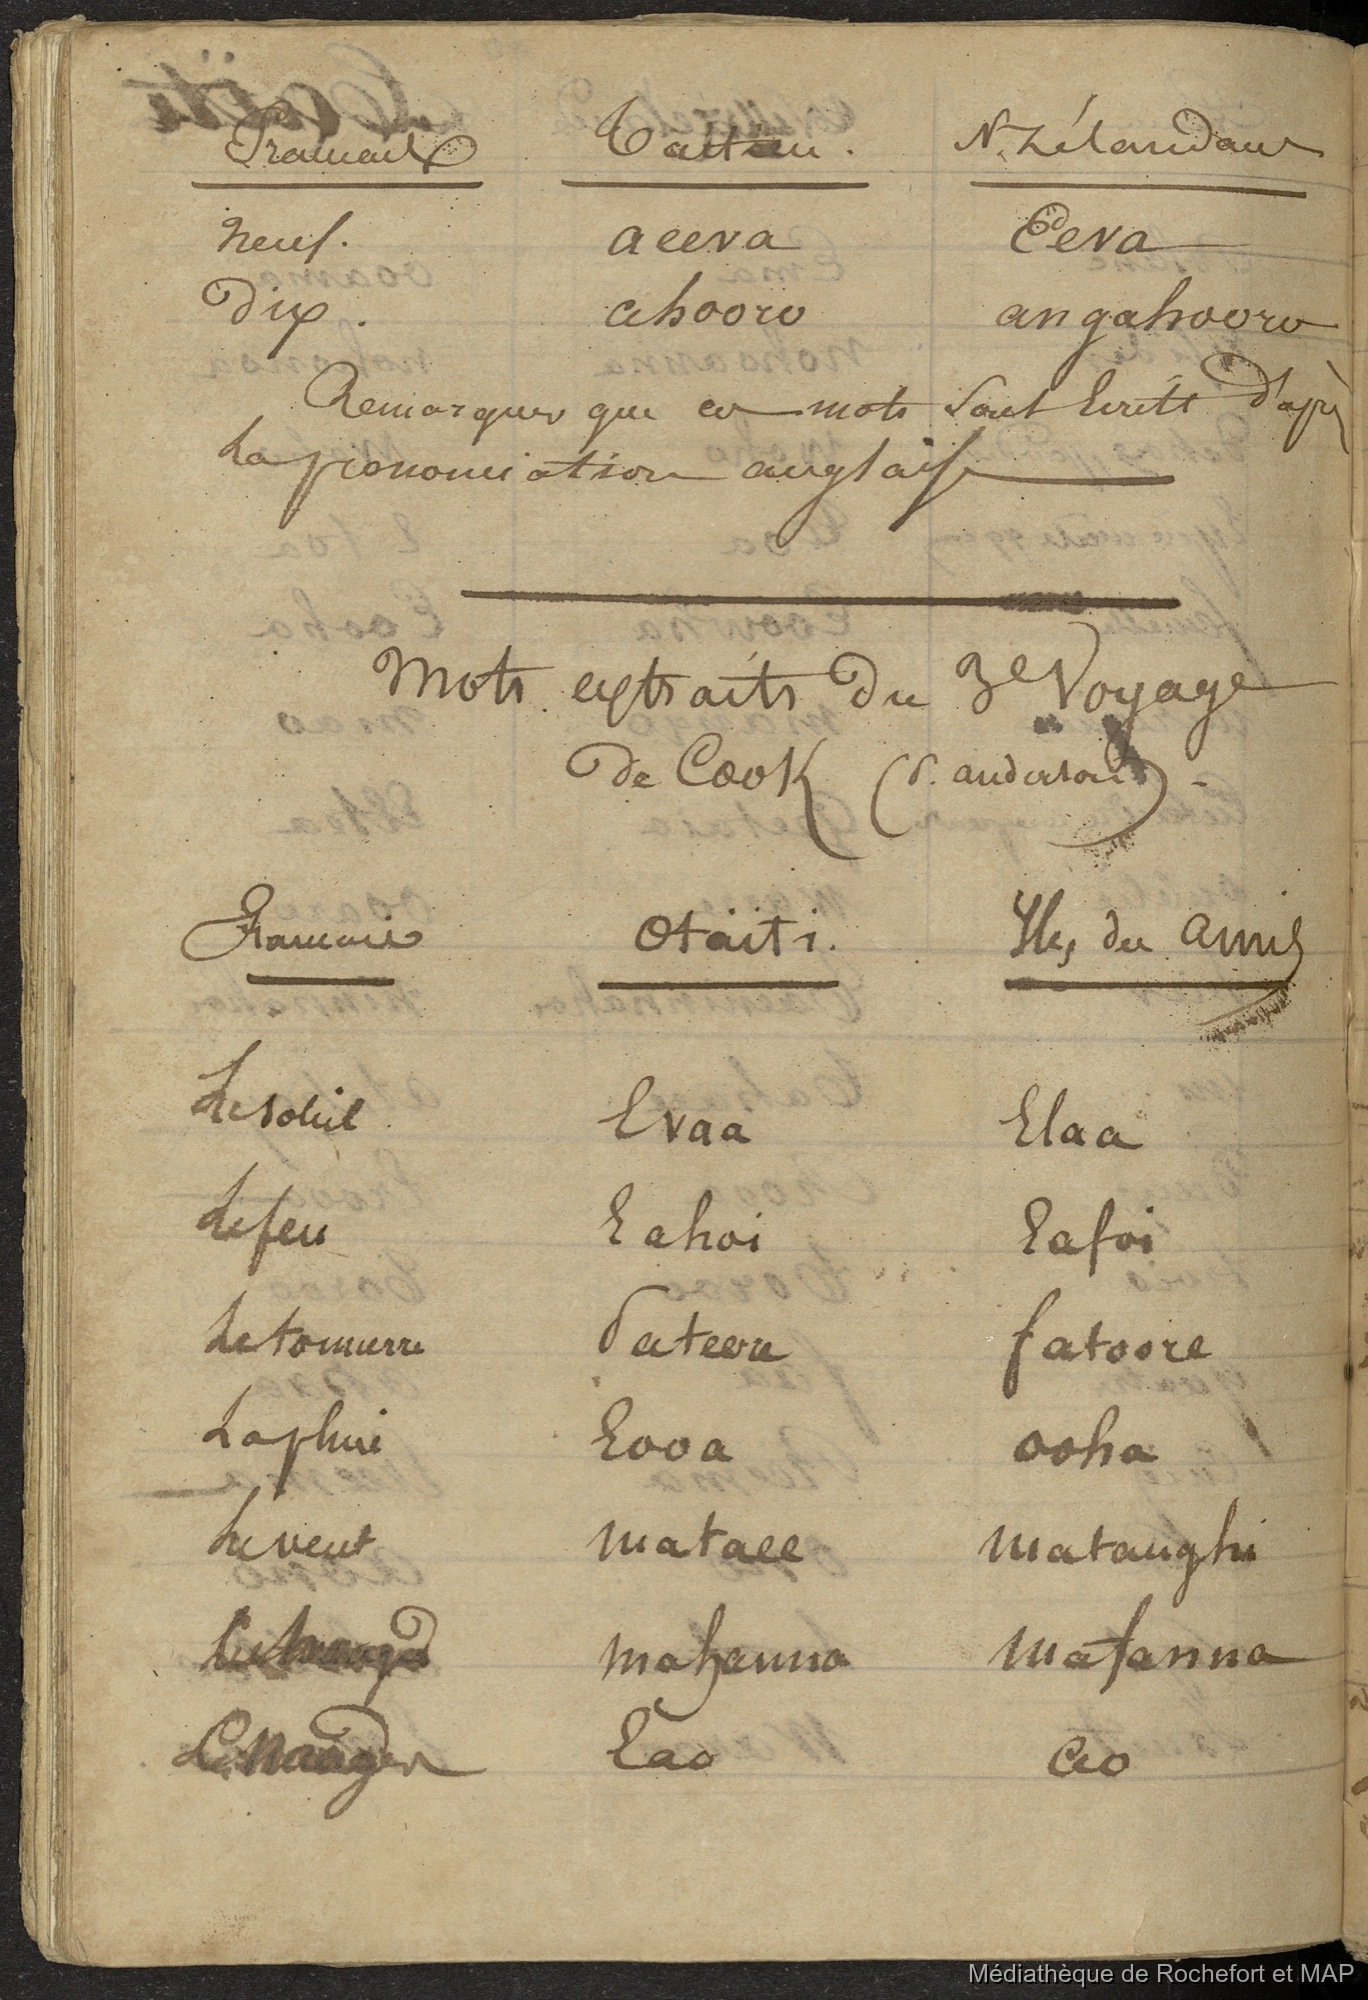 Français Taïtien. N. Zélandais
neuf. aeeva Eeva
Dix. ahooro angahooro
Remarquer que ces mots sont Ecrits D'après
La prononciation anglaise
Mots extraits du 3e Voyage
de Cook (S. anderson) -
Français Otaïti. Iles des amis
Le soleil Eraa Elaa
Le feu Eahoi Eafoi
Le tonnerre Pateere fatoore
La pluie Eooa ooha
Le vent mataee matanghi
mahanna mafanna
Le nuage Eao ao
Médiathèque de Rochefort et MAP